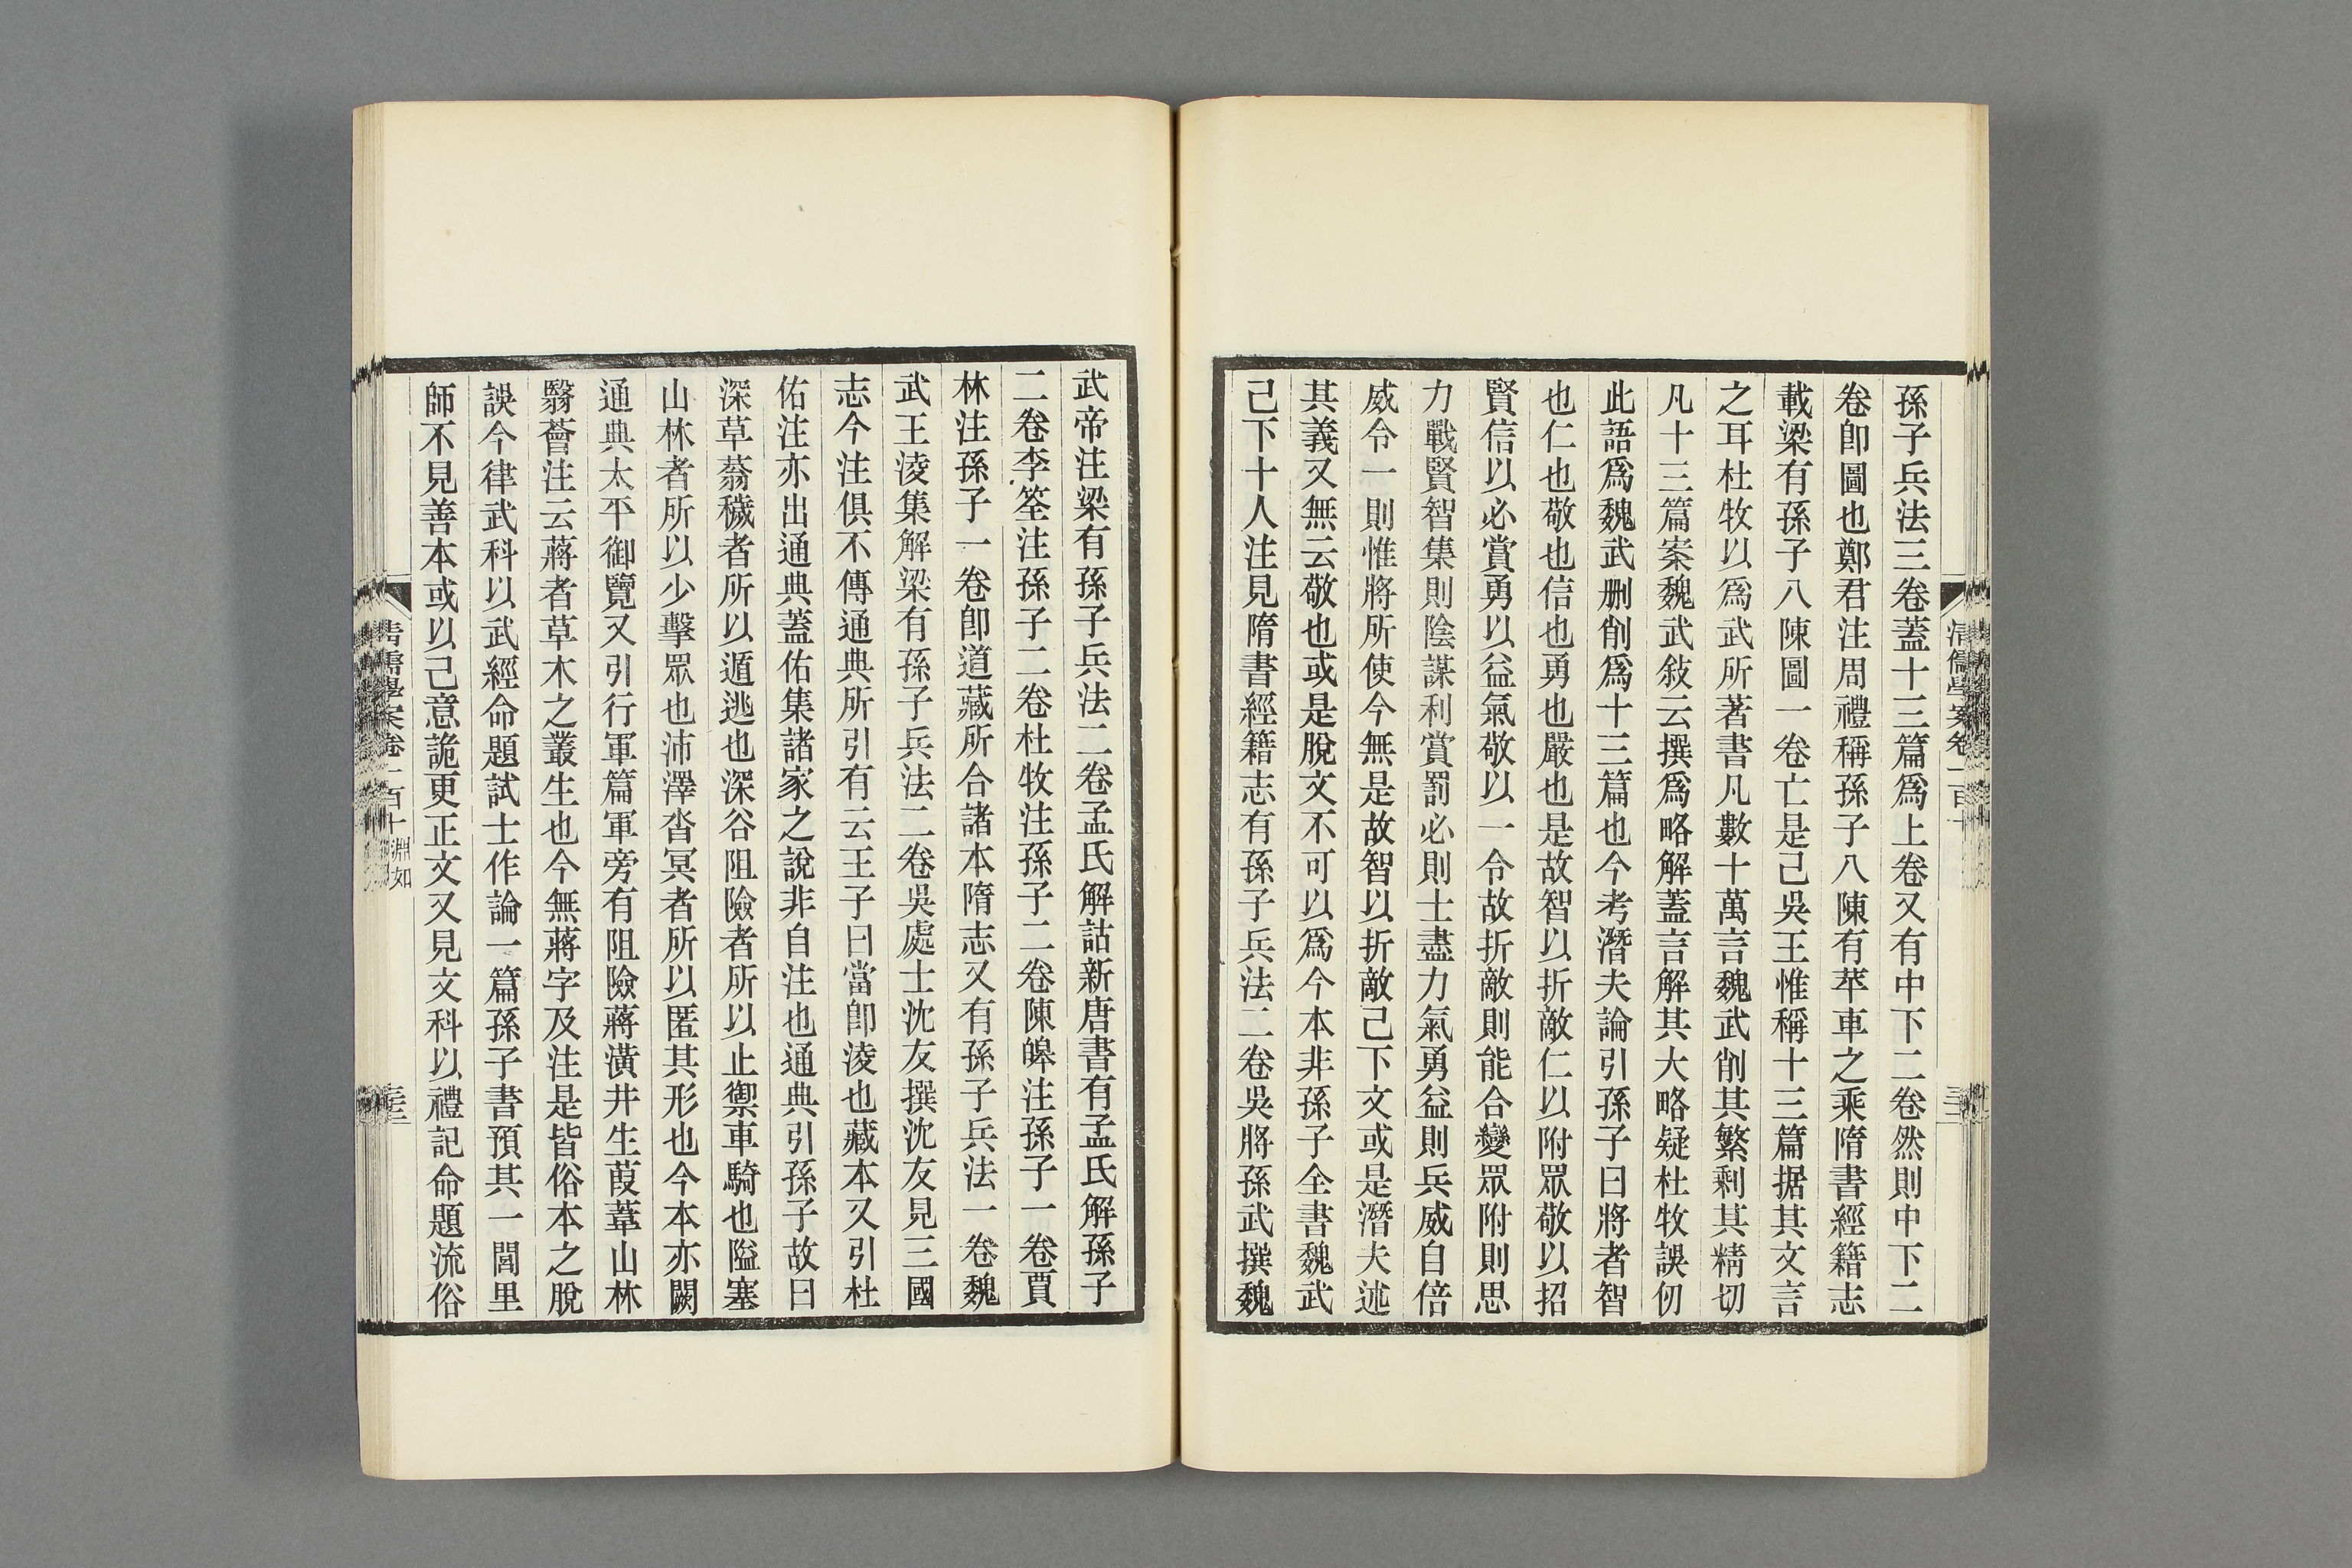 孫子兵法三卷蓋十三篇爲上卷又有中下二卷然則中下二
卷卽圖也鄭君注周禮稱孫子八陳有苹車之乘隋書經籍志
載梁有孫子八陳圖一卷亡是已吳王惟稱十三篇据其文言
之耳杜牧以爲武所著書凡數十萬言魏武削其繁剩其精切
凡十三篇案魏武敍云撰爲略解蓋言解其大略疑杜牧誤仞
此語爲魏武刪削爲十三篇也今考潛夫論引孫子曰將者智
也仁也敬也信也勇也嚴也是故智以折敵仁以附眾敬以招
賢信以必賞勇以益氣敬以一令故折敵則能合變眾附則思
力戰賢智集則陰謀利賞罰必則士盡力氣勇益則兵威自倍
威令一則惟將所使今無是故智以折敵己下文或是潛夫述
其義又無云敬也或是脫文不可以爲今本非孫子全書魏武
己下十人注見隋書經籍志有孫子兵法二卷吳將孫武撰魏
清儒學案卷一百十
武帝注梁有孫子兵法二卷孟氏解詁新唐書有孟氏解孫子
二卷李筌注孫子二卷杜牧注孫子二卷陳皞注孫子一卷賈
林注孫子一卷卽道藏所合諸本隋志又有孫子兵法一卷魏
武王淩集解梁有孫子兵法二卷吳處士沈友撰沈友見三國
志今注俱不傳通典所引有云王子曰當卽淩也藏本又引杜
佑注亦出通典蓋佑集諸家之說非自注也通典引孫子故曰
深草蓊穢者所以遁逃也深谷阻險者所以止禦車騎也隘塞
山林者所以少擊眾也沛澤杳冥者所以匿其形也今本亦闕
通典太平御覽又引行軍篇軍旁有阻險蔣潢井生葭葦山林
翳薈注云蔣者草木之叢生也今無蔣字及注是皆俗本之脫
誤今律武科以武經命題試士作論一篇孫子書預其一閭里
師不見善本或以己意詭更正文又見文科以禮記命題流俗
清儒學案卷一百十 淵如